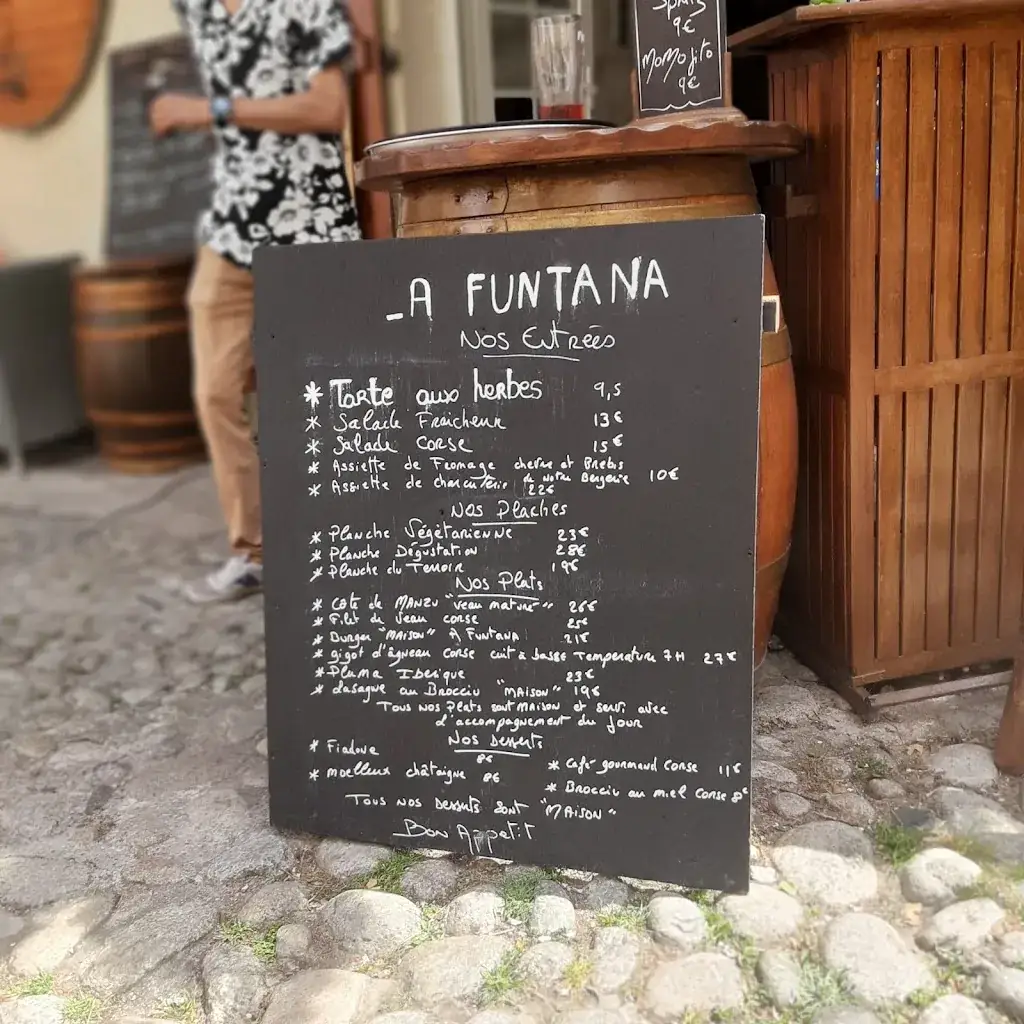 Spritz
9€
MoMojito
9€
A FUNTANA
Nos Entrées
* Tarte aux herbes 9,5
* Salade Fraicheur 13€
* Salade Corse 15€
* Assiette de Fromage chevre et Brebis 10€
* Assiette de charcuterie de Notre Bergerie 22€
Nos Planches
* Planche Végétarienne 23€
* Planche Dégustation 28€
* Planche du Terroir 19€
Nos Plats
* Côte de MANZU "veau mature" 26€
* Filet de Veau corse 25€
* Burger "MAISON" A Funtana 21€
* gigot d'Agneau Corse cuit à basse Temperature 7H 27€
* Pluma Iberique 23€
* Lasagne au Brocciu "MAISON" 19€
Tous nos Plats sont MAISON et servi avec
d'accompagnement du jour
Nos Desserts
* Fiadone 8€
* moelleux châtaigne 8€
* Café gourmand Corse 11€
* Brocciu au miel Corse 8€
Tous nos Desserts sont "MAISON"
Bon Appetit